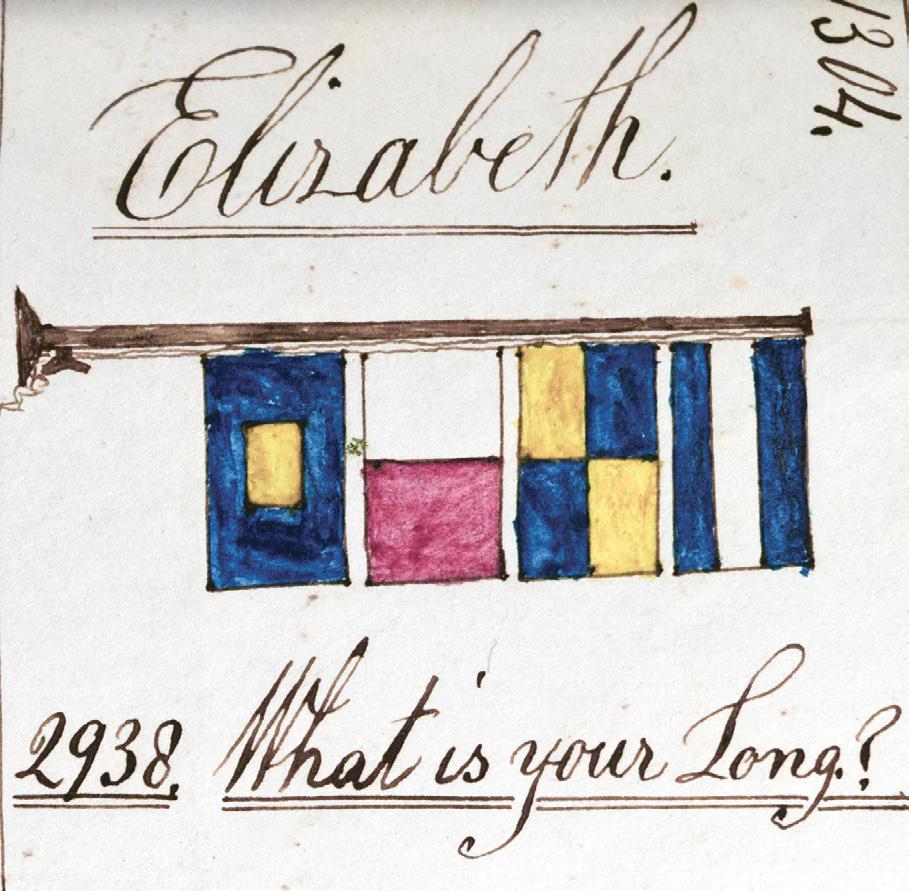 Elizabeth.
1304.
2938. What is your Long.?